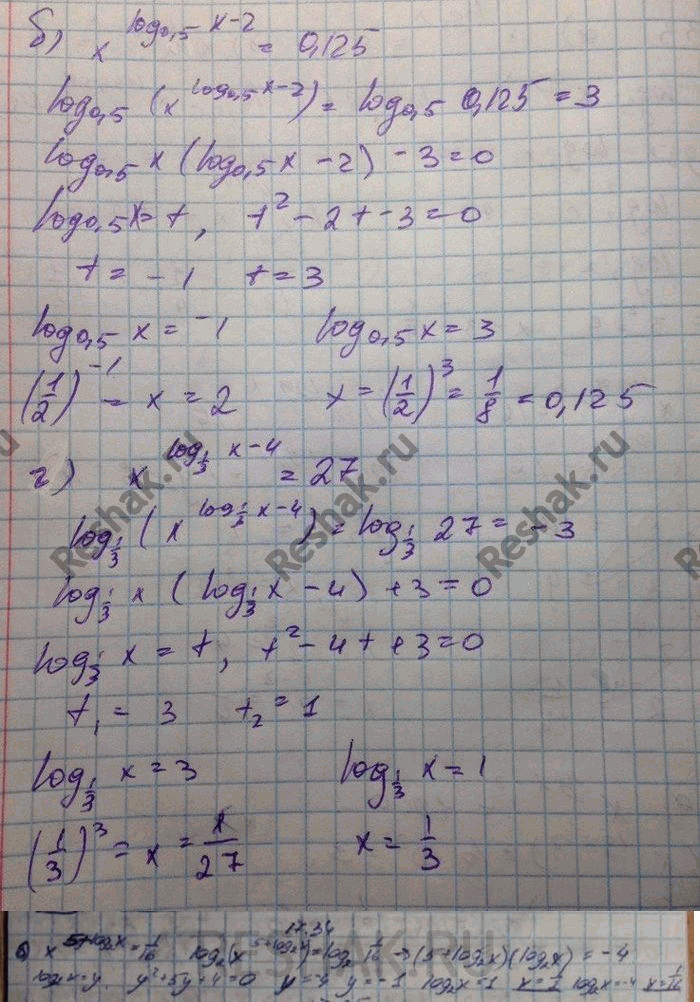 б) x^(log₀,₅ x-2) = 0,125
log₀,₅ (x^(log₀,₅ x-2)) = log₀,₅ 0,125 = 3
log₀,₅ x (log₀,₅ x - 2) - 3 = 0
log₀,₅ x = t, t² - 2t - 3 = 0
t = -1 t = 3
log₀,₅ x = -1 log₀,₅ x = 3
(1/2)⁻¹ = x = 2 x = (1/2)³ = 1/8 = 0,125
г) x^(log_(1/3) x-4) = 27
log_(1/3) (x^(log_(1/3) x-4)) = log_(1/3) 27 = -3
log_(1/3) x (log_(1/3) x - 4) + 3 = 0
log_(1/3) x = t, t² - 4t + 3 = 0
t₁ = 3 t₂ = 1
log_(1/3) x = 3 log_(1/3) x = 1
(1/3)³ = x = x/27 x = 1/3
Reshak.ru Reshak.ru Reshak.ru
17.34
x^(5+log₂x) = 1/16 log₂(x^(5+log₂x)) = log₂ 1/16 → (5+log₂x)(log₂x) = -4
log₂x = y. y²+5y+4=0 y=-4 y=-1 log₂x=1 x=1/2 log₂x=-4 x=1/16
RESHAK.RU